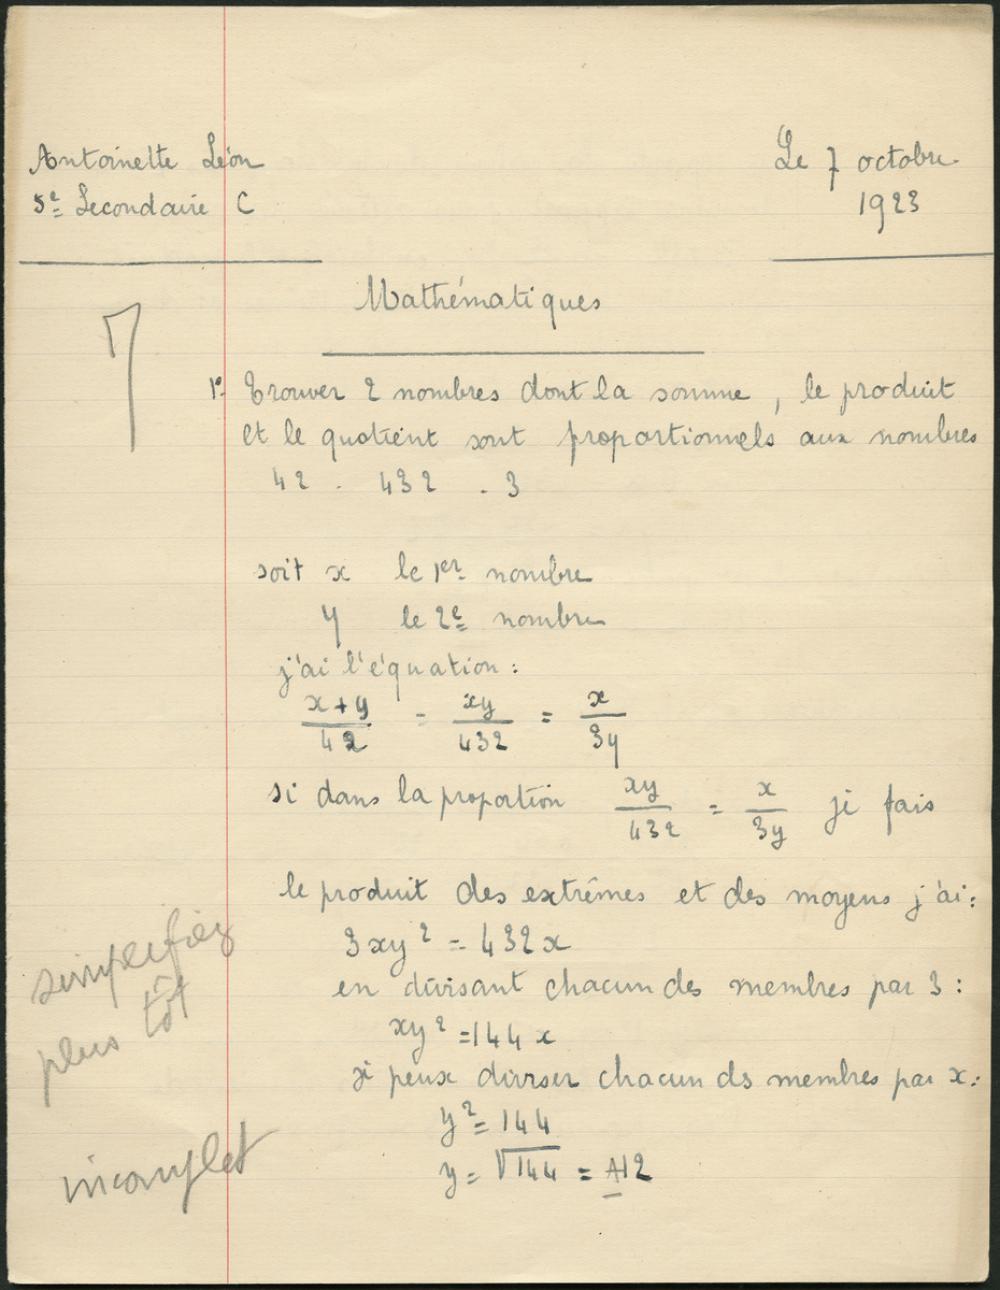 Antoinette Léon
5e Secondaire C
Le 7 octobre
1923
Mathématiques
7
1º Trouver 2 nombres dont la somme, le produit
et le quotient sont proportionnels aux nombres
42 . 432 . 3
soit x le 1er nombre
y le 2e nombre
j'ai l'équation :
x+y/42 = xy/432 = x/3y
si dans la proportion xy/432 = x/3y je fais
le produit des extrêmes et des moyens j'ai :
3xy² = 432x
en divisant chacun des membres par 3 :
xy² = 144x
simplifiez
plus tôt
je peux diviser chacun ds membres par x :
y² = 144
y = √144 = 12
incomplet